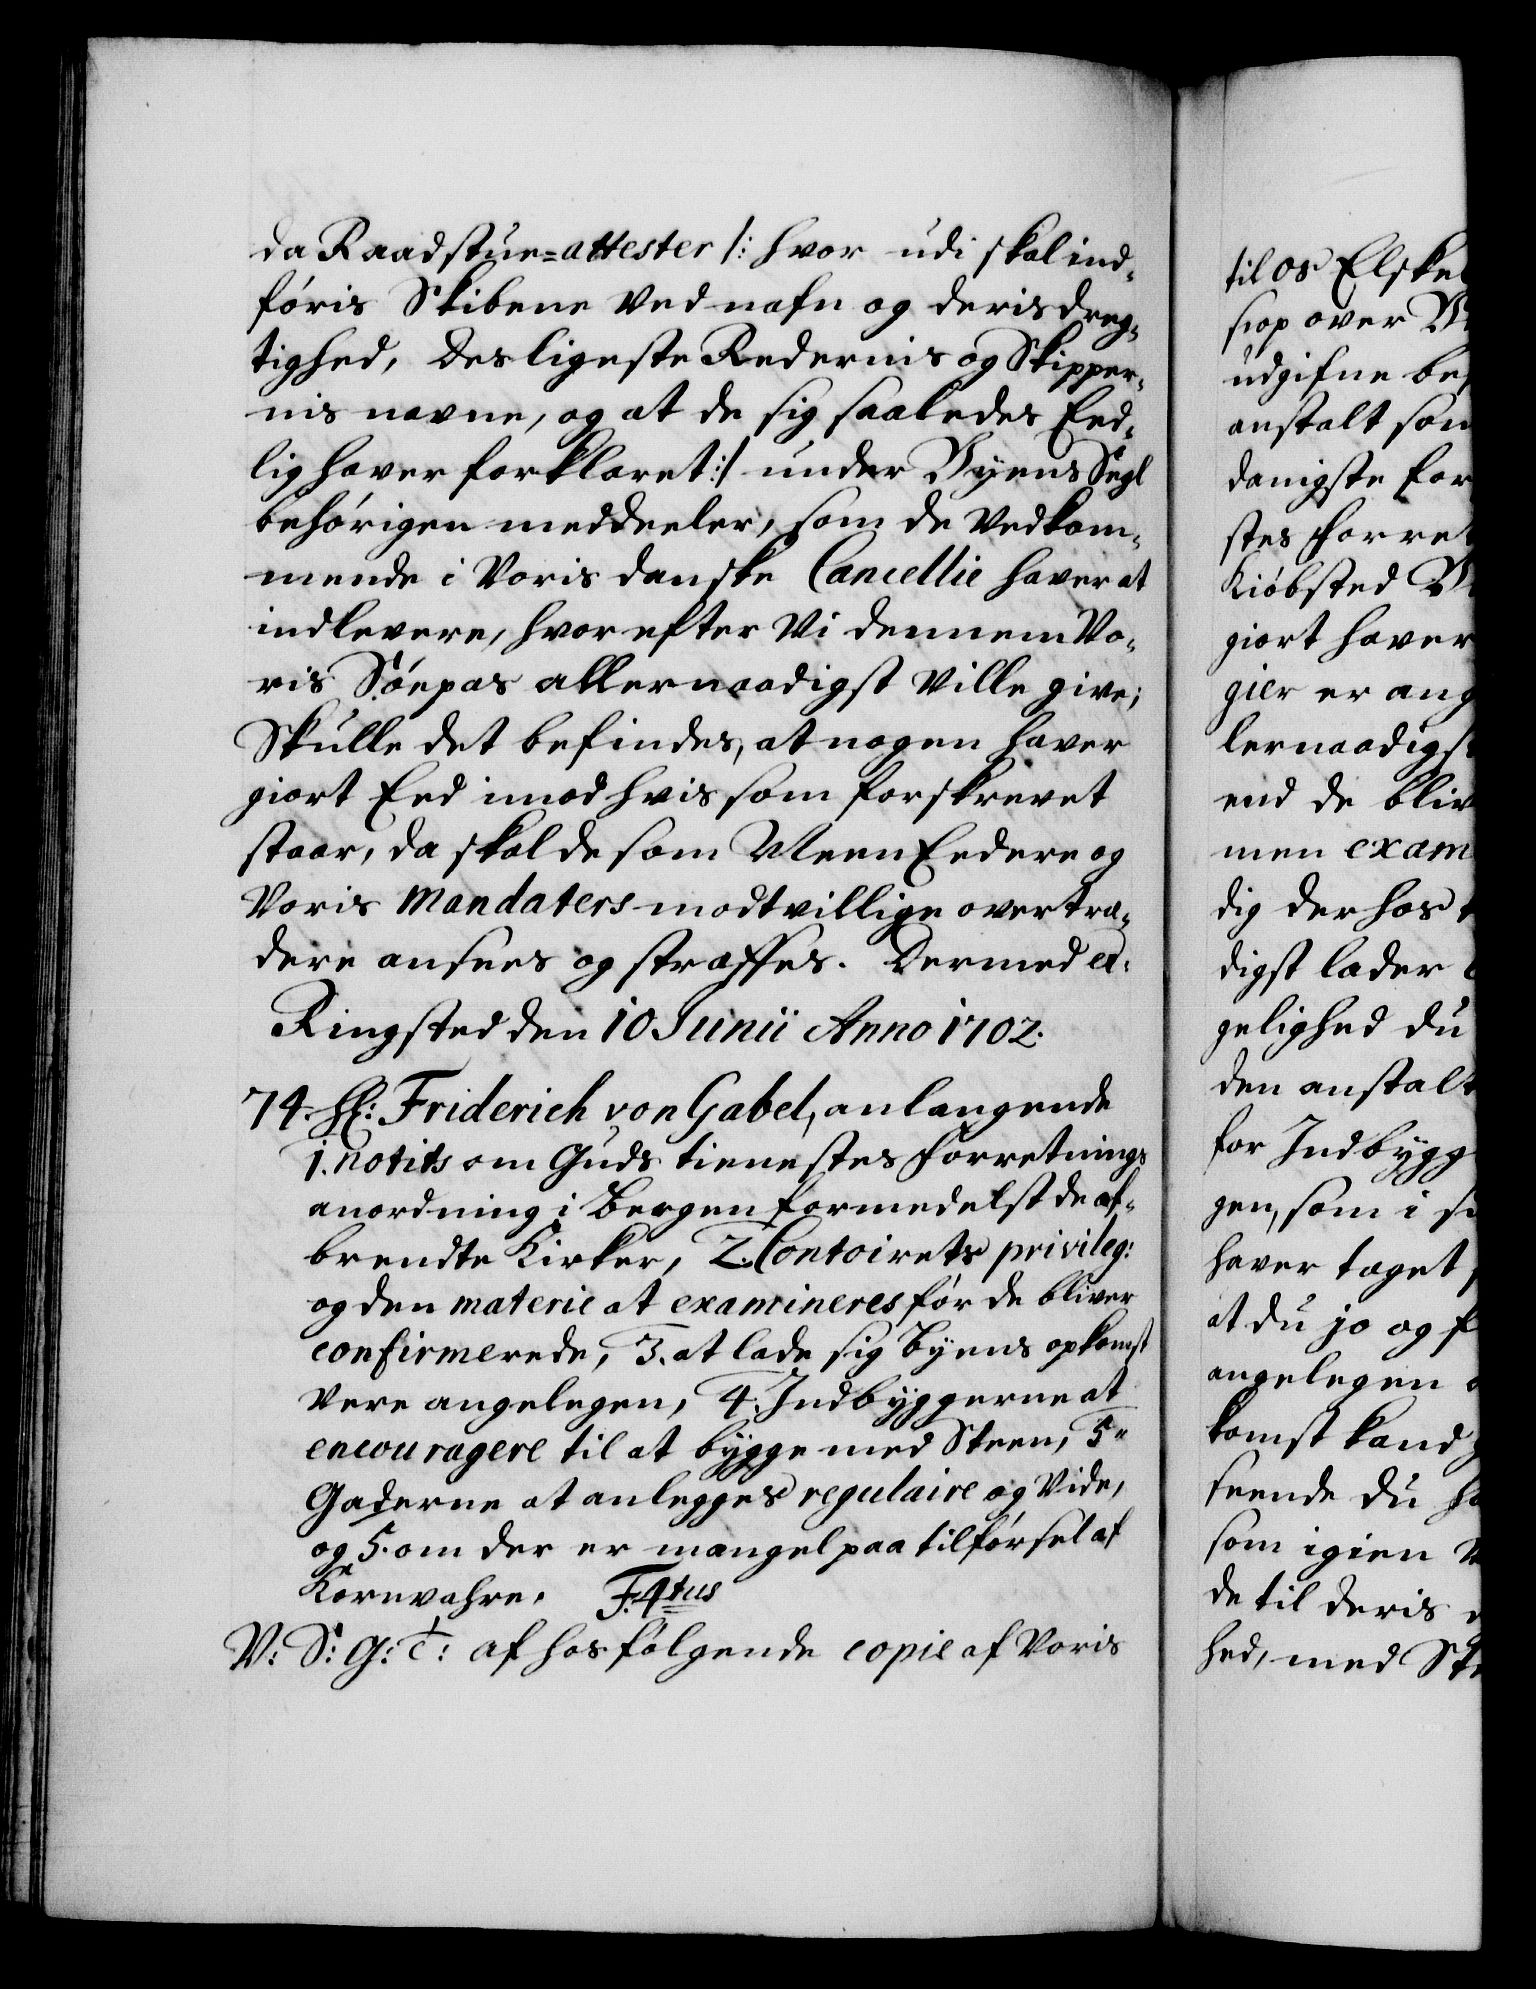 da Raadstue=attester /: hvor udi skal ind-
føris Skibene ved nafn og deris dreg-
tighed, desligeste Redernis og Skipper-
nis navne, og at de sig saaledes Eed-
lig haver forklaret :/ under Byens Segl
behørigen meddeeler, som de Vedkom-
mende i Voris danske Cancellie haver at
indlevere, hvorefter Vi dennem Vo-
ris Søepas allernaadigst Ville give;
Skulle det befindes, at nogen haver
giort Eed imod hvis som forskrevet
staar, da skal de som Meen Eedere og
Voris Mandaters modtvillige overtræ-
dere ansees og straffes. Dermed et.
Ringsted den 10 Junii Anno 1702.
74. Hr: Friderich von Gabel, anlangende
1. notits om Guds tienestes forretnings
anordning i Bergen formedelst de af-
brendte Kirker, 2. Contoirets privileg:
og den materie at examineres før de bliver
confirmerede, 3. at lade sig Byens opkomst
Vere angelegen, 4. Indbyggerne at
encouragere til at bygge med Steen, 5"
Gaderne at anlegges regulaire og Vide,
og 5. om der er mangel paa tilførsel af
Kornvahre. F. 4tus
V: S: G: T: af hosfølgende copie af Voris
til os Elske
siop over
udgifne be
anstalt som
danigste for
stes forret
Kiøbsted
giort haver
gier er ang
lernaadigst
end de bliv
men exam
dig der hos
digst lader
gelighed du
den anstalt
for Indbygg
gen, som i
haver taget
at du jo og
angelegen
komst kand
seende du
som igien
de til deris
hed, med